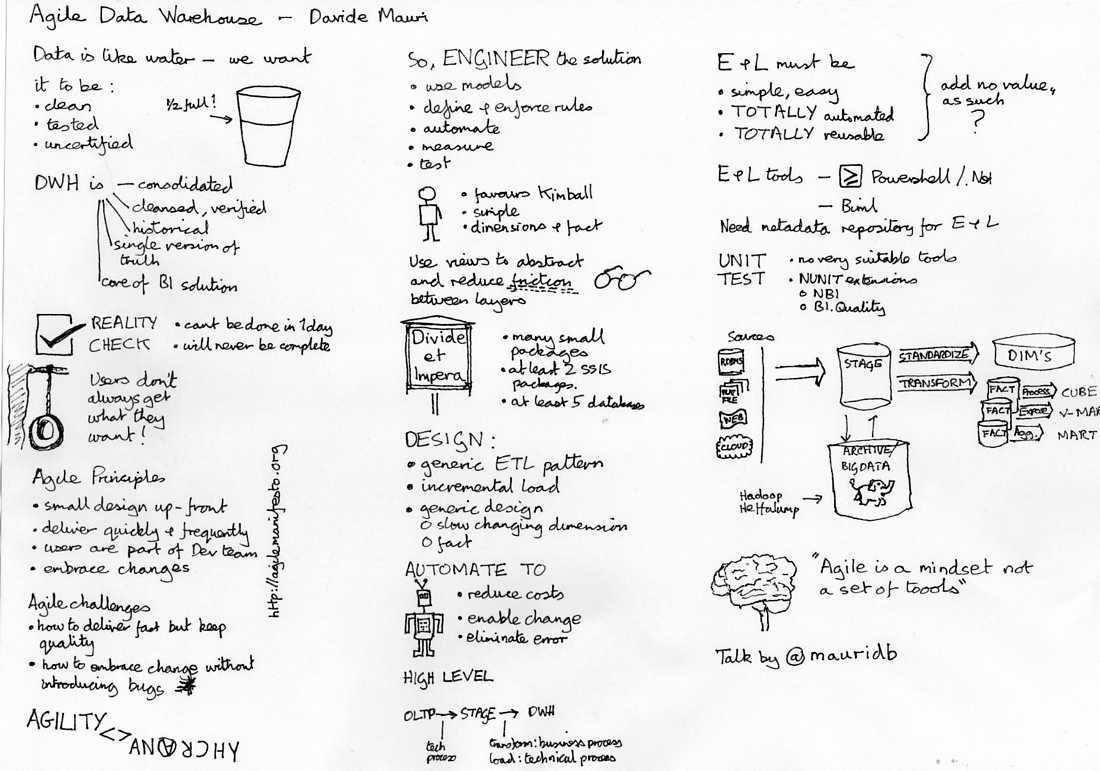 Agile Data Warehouse – Davide Mauri
Data is like water – we want
it to be:
• clean
• tested
• uncertified
1/2 full?
DWH is – consolidated
cleansed, verified
historical
single version of
truth
core of BI solution
REALITY
CHECK
• cant be done in 1 day
• will never be complete
Users don't
always get
what they
want!
Agile Principles
• small design up-front
• deliver quickly & frequently
• users are part of Dev team
• embrace changes
http://agilemanifesto.org
Agile challenges
• how to deliver fast but keep
quality
• how to embrace change without
introducing bugs
AGILITY
<>
ANARCHY
So, ENGINEER the solution
• use models
• define & enforce rules
• automate
• measure
• test
• favours Kimball
• simple
• dimensions & fact
Use views to abstract
and reduce friction
between layers
Divide
et
Impera
• many small
packages
• at least 2 SSIS
packages.
• at least 5 databases
DESIGN:
• generic ETL pattern
• incremental Load
• generic design
o slow changing dimension
o fact
AUTOMATE TO
• reduce costs
• enable change
• eliminate error
HIGH LEVEL
OLTP → STAGE → DWH
tech
process
transform: business process
load: technical process
E & L must be
• simple, easy
• TOTALLY automated
• TOTALLY reusable
add no value,
as such
?
E & L tools – Powershell / .Net
– Biml
Need metadata repository for E & L
UNIT
TEST
• no very suitable tools
• NUNIT extensions
o NBI
o BI.Quality
Sources
RDBMS
FLAT
FILE
WEB
CLOUD
STAGE
STANDARDIZE
TRANSFORM
DIM'S
FACT Process CUBE
FACT Expose V-MAR
FACT Agg. MART
ARCHIVE/
BIGDATA
Hadoop
Heffalump
"Agile is a mindset not
a set of toools"
Talk by @mauridb